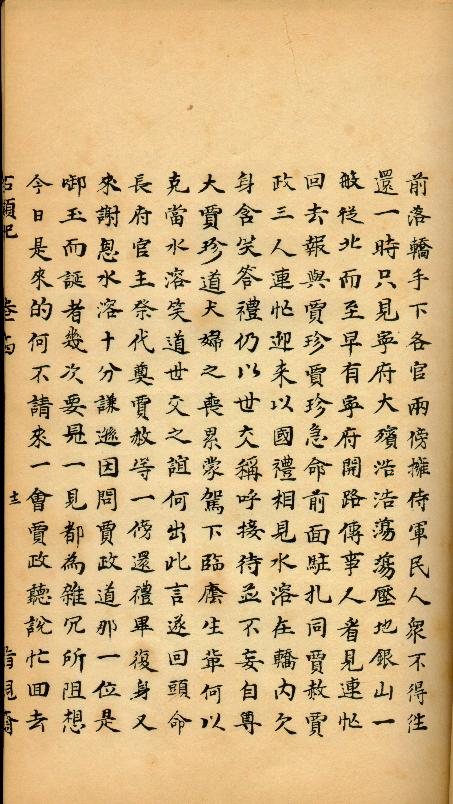 前落轎手下各官兩傍擁侍軍民人衆不得徃
還一時只見寧府大殯浩浩蕩蕩壓地銀山一
般從北而至早有寧府開路傳事人者見連忙
回去報與賈珍賈珍急命前面駐扎同賈赦賈
政三人連忙迎来以國禮相見水溶在轎内欠
身含笑答禮仍以世交稱呼接待並不妄自尊
大賈珍道犬婦之喪累蒙駕下臨廕生軰何以
克當水溶笑道世交之誼何出此言遂回頭命
長府官主祭代奠賈赦等一傍還禮畢復身又
來謝恩水溶十分謙遜因問賈政道那一位是
啣玉而誕者幾次要見一見都為雜冗所阻想
今日是來的何不請來一會賈政聽說忙回去
石頭記 卷十四 十三 脂硯齋